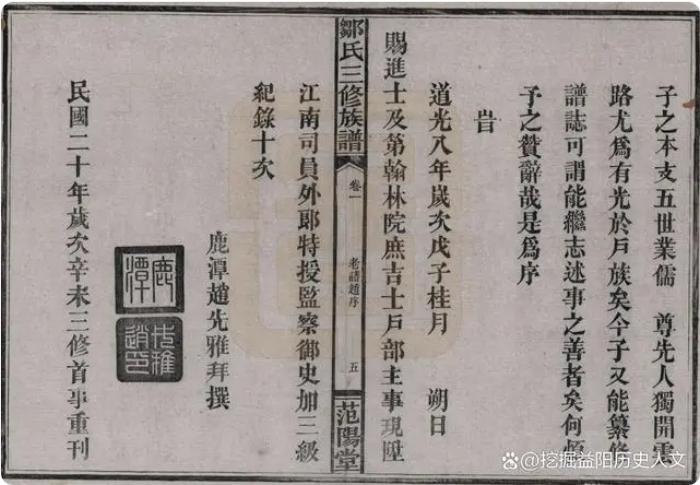 子之本支五世業儒　尊先人獨開雲
路尤爲有光於戶族矣今子又能纂修
譜誌可謂能繼志述事之善者矣何
予之贊辭哉是爲序
旹
道光八年嵗次戊子桂月　朔日
賜進士及第翰林院庶吉士戶部主事現陞
鄒氏三修族譜
卷一
老譜趙序
五
范陽堂
江南司員外郎特授監察御史加三級
紀錄十次
鹿潭趙先雅拜撰
鹿潭
先雅趙印
民國二十年歲次辛未三修首事重刊
@挖掘益阳历史人文